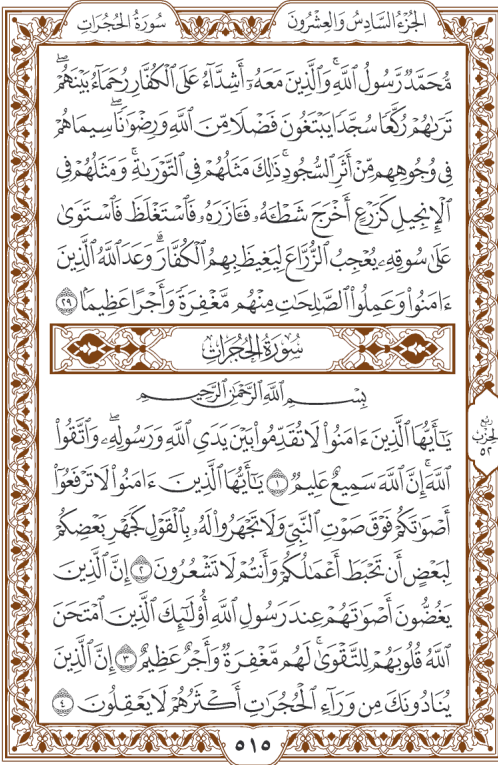 الجُزْءُ السَّادِسُ وَالعِشْرُونَ
سُورَةُ الحُجُرَاتِ
مُّحَمَّدٌ رَّسُولُ ٱللَّهِۚ وَٱلَّذِينَ مَعَهُۥٓ أَشِدَّآءُ عَلَى ٱلْكُفَّارِ رُحَمَآءُ بَيْنَهُمْۖ
تَرَىٰهُمْ رُكَّعًا سُجَّدًا يَبْتَغُونَ فَضْلًا مِّنَ ٱللَّهِ وَرِضْوَٰنًاۖ سِيمَاهُمْ
فِى وُجُوهِهِم مِّنْ أَثَرِ ٱلسُّجُودِۚ ذَٰلِكَ مَثَلُهُمْ فِى ٱلتَّوْرَىٰةِۚ وَمَثَلُهُمْ فِى
ٱلْإِنجِيلِ كَزَرْعٍ أَخْرَجَ شَطْـَٔهُۥ فَـَٔازَرَهُۥ فَٱسْتَغْلَظَ فَٱسْتَوَىٰ
عَلَىٰ سُوقِهِۦ يُعْجِبُ ٱلزُّرَّاعَ لِيَغِيظَ بِهِمُ ٱلْكُفَّارَۗ وَعَدَ ٱللَّهُ ٱلَّذِينَ
ءَامَنُوا۟ وَعَمِلُوا۟ ٱلصَّٰلِحَٰتِ مِنْهُم مَّغْفِرَةً وَأَجْرًا عَظِيمًۢا ٢٩
سُورَةُ الحُجُرَاتِ
بِسْمِ ٱللَّهِ ٱلرَّحْمَٰنِ ٱلرَّحِيمِ
يَٰٓأَيُّهَا ٱلَّذِينَ ءَامَنُوا۟ لَا تُقَدِّمُوا۟ بَيْنَ يَدَىِ ٱللَّهِ وَرَسُولِهِۦۖ وَٱتَّقُوا۟
ٱللَّهَۚ إِنَّ ٱللَّهَ سَمِيعٌ عَلِيمٌ ١ يَٰٓأَيُّهَا ٱلَّذِينَ ءَامَنُوا۟ لَا تَرْفَعُوٓا۟
أَصْوَٰتَكُمْ فَوْقَ صَوْتِ ٱلنَّبِىِّ وَلَا تَجْهَرُوا۟ لَهُۥ بِٱلْقَوْلِ كَجَهْرِ بَعْضِكُمْ
لِبَعْضٍ أَن تَحْبَطَ أَعْمَٰلُكُمْ وَأَنتُمْ لَا تَشْعُرُونَ ٢ إِنَّ ٱلَّذِينَ
يَغُضُّونَ أَصْوَٰتَهُمْ عِندَ رَسُولِ ٱللَّهِ أُو۟لَٰٓئِكَ ٱلَّذِينَ ٱمْتَحَنَ
ٱللَّهُ قُلُوبَهُمْ لِلتَّقْوَىٰۚ لَهُم مَّغْفِرَةٌ وَأَجْرٌ عَظِيمٌ ٣ إِنَّ ٱلَّذِينَ
يُنَادُونَكَ مِن وَرَآءِ ٱلْحُجُرَٰتِ أَكْثَرُهُمْ لَا يَعْقِلُونَ ٤
رُبْع
الحِزْب
٥٢
٥١٥